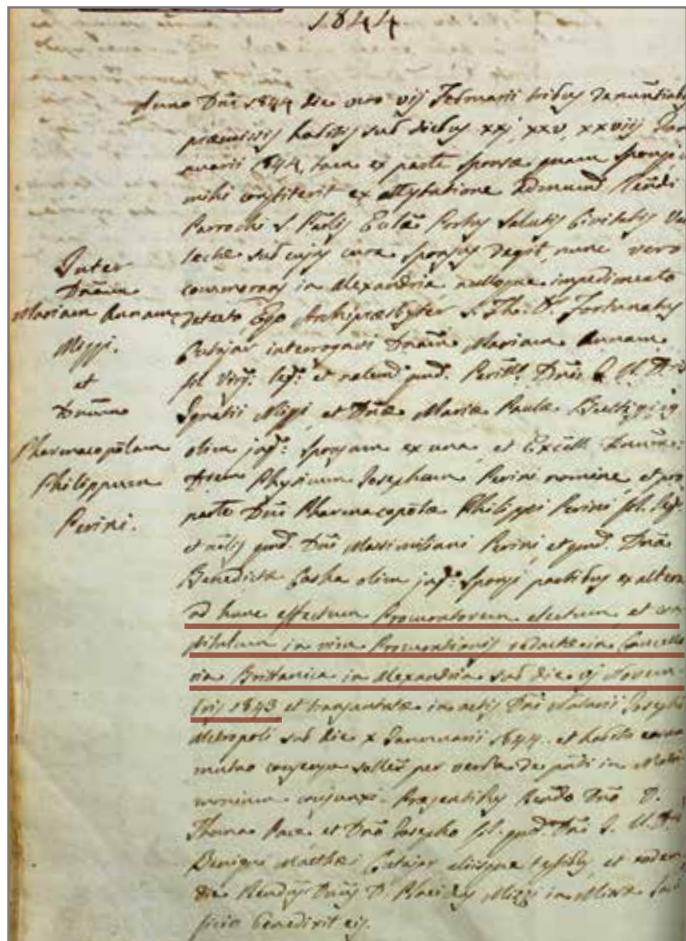 1844
Anno Dñi 1844 die vero vij Februarii tribus denuntiationibus
præmissis habitis sub diebus xxj, xxv, xxviij Jan
nuarii 1844, tam ex parte sponsæ quam sponsi
mihi constiterit ex attestatione Edmundi
Parrochi S. Pauli Portus Salutis Civitatis Val
letæ sub cujus cura sponsus degit nunc vero
commorans in Alexandria nulloque impedimento
detecto Ego Archipresbyter S. Th: D. Fortunatus
Cutajar interrogavi Dnam Mariam Annam
fil. virg: leg: et natem qnd. Perill. Dnis J. U. D.
Ignatii Mizzi et Dnæ Mariæ Paulæ
olim jug: sponsam ex una, et Excell. Dnum
Physicum Josephum Perini nomine, et pro
parte Dni Pharmacopolæ Philippi Perini fil. leg:
et nalis qnd. Dni Massimiliani Perini, et qnd. Dnæ
Benedictæ Pasha olim jug: sponsi partibus ex altera
ad hunc effectum Procuratorem electum, et con
stitutum in vim Procurationis redactæ in Cancella
ria Brittanica in Alexandria sub die vj Novem
bris 1843 et transuntatæ in actis Dni Notarii Josephi
Metropoli sub die x Januarii 1844. et habito eorum
mutuo consensu per verba de pnti in Matri
monium conjunxi. Præsentibus Rendo Dno D.
Thoma Pace et Dno Josepho fil. qnd. Dni J. U. D.
Benigni Matthæi Cutajar aliisque testibus et eodem
die Rendus Dnus D. Placidus Mizzi in Missæ Sacri
ficio benedixit eis.
Inter
Dnam
Mariam Annam
Mizzi.
et
Dnum
Pharmacopolam
Philippum
Perini.